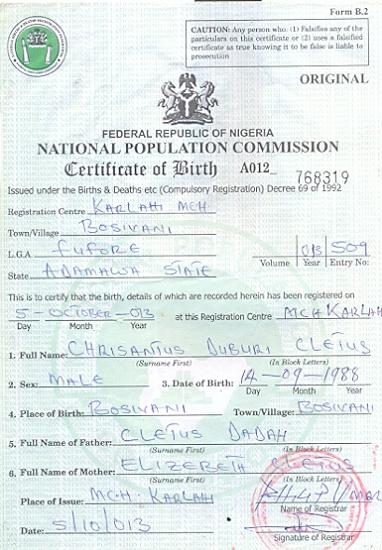 Form B.2
CAUTION: Any person who: (1) Falsifies any of the
particulars on this certificate or (2) uses a falsified
certificate as true knowing it to be false is liable to
prosecution
ORIGINAL
FEDERAL REPUBLIC OF NIGERIA
NATIONAL POPULATION COMMISSION
Certificate of Birth A012_ 768319
Issued under the Births & Deaths etc (Compulsory Registration) Decree 69 of 1992
Registration Centre KARLAHI MCH
Town/Village BOSIVANI
L.G.A FUFORE
State ADAMAWA STATE
013 509
Volume Year Entry No:
This is to certify that the birth, details of which are recorded herein has been registered on
5-OCTOBER-013 at this Registration Centre MCH KARLAH
Day Month Year
1. Full Name: CHRISANTUS DUBURI CLETUS
(Surname First) (In Block Letters)
2. Sex: MALE 3. Date of Birth: 14-09-1988
Day Month Year
4. Place of Birth: BOSIVANI Town/Village: BOSIVANI
5. Full Name of Father: CLETUS DADAH
(Surname First) (In Block Letters)
6. Full Name of Mother: ELIZEBETH CLETUS
(Surname First) (In Block Letters)
Place of Issue: MCH KARLAH
Name of Registrar
Date: 5/10/013
Signature of Registrar